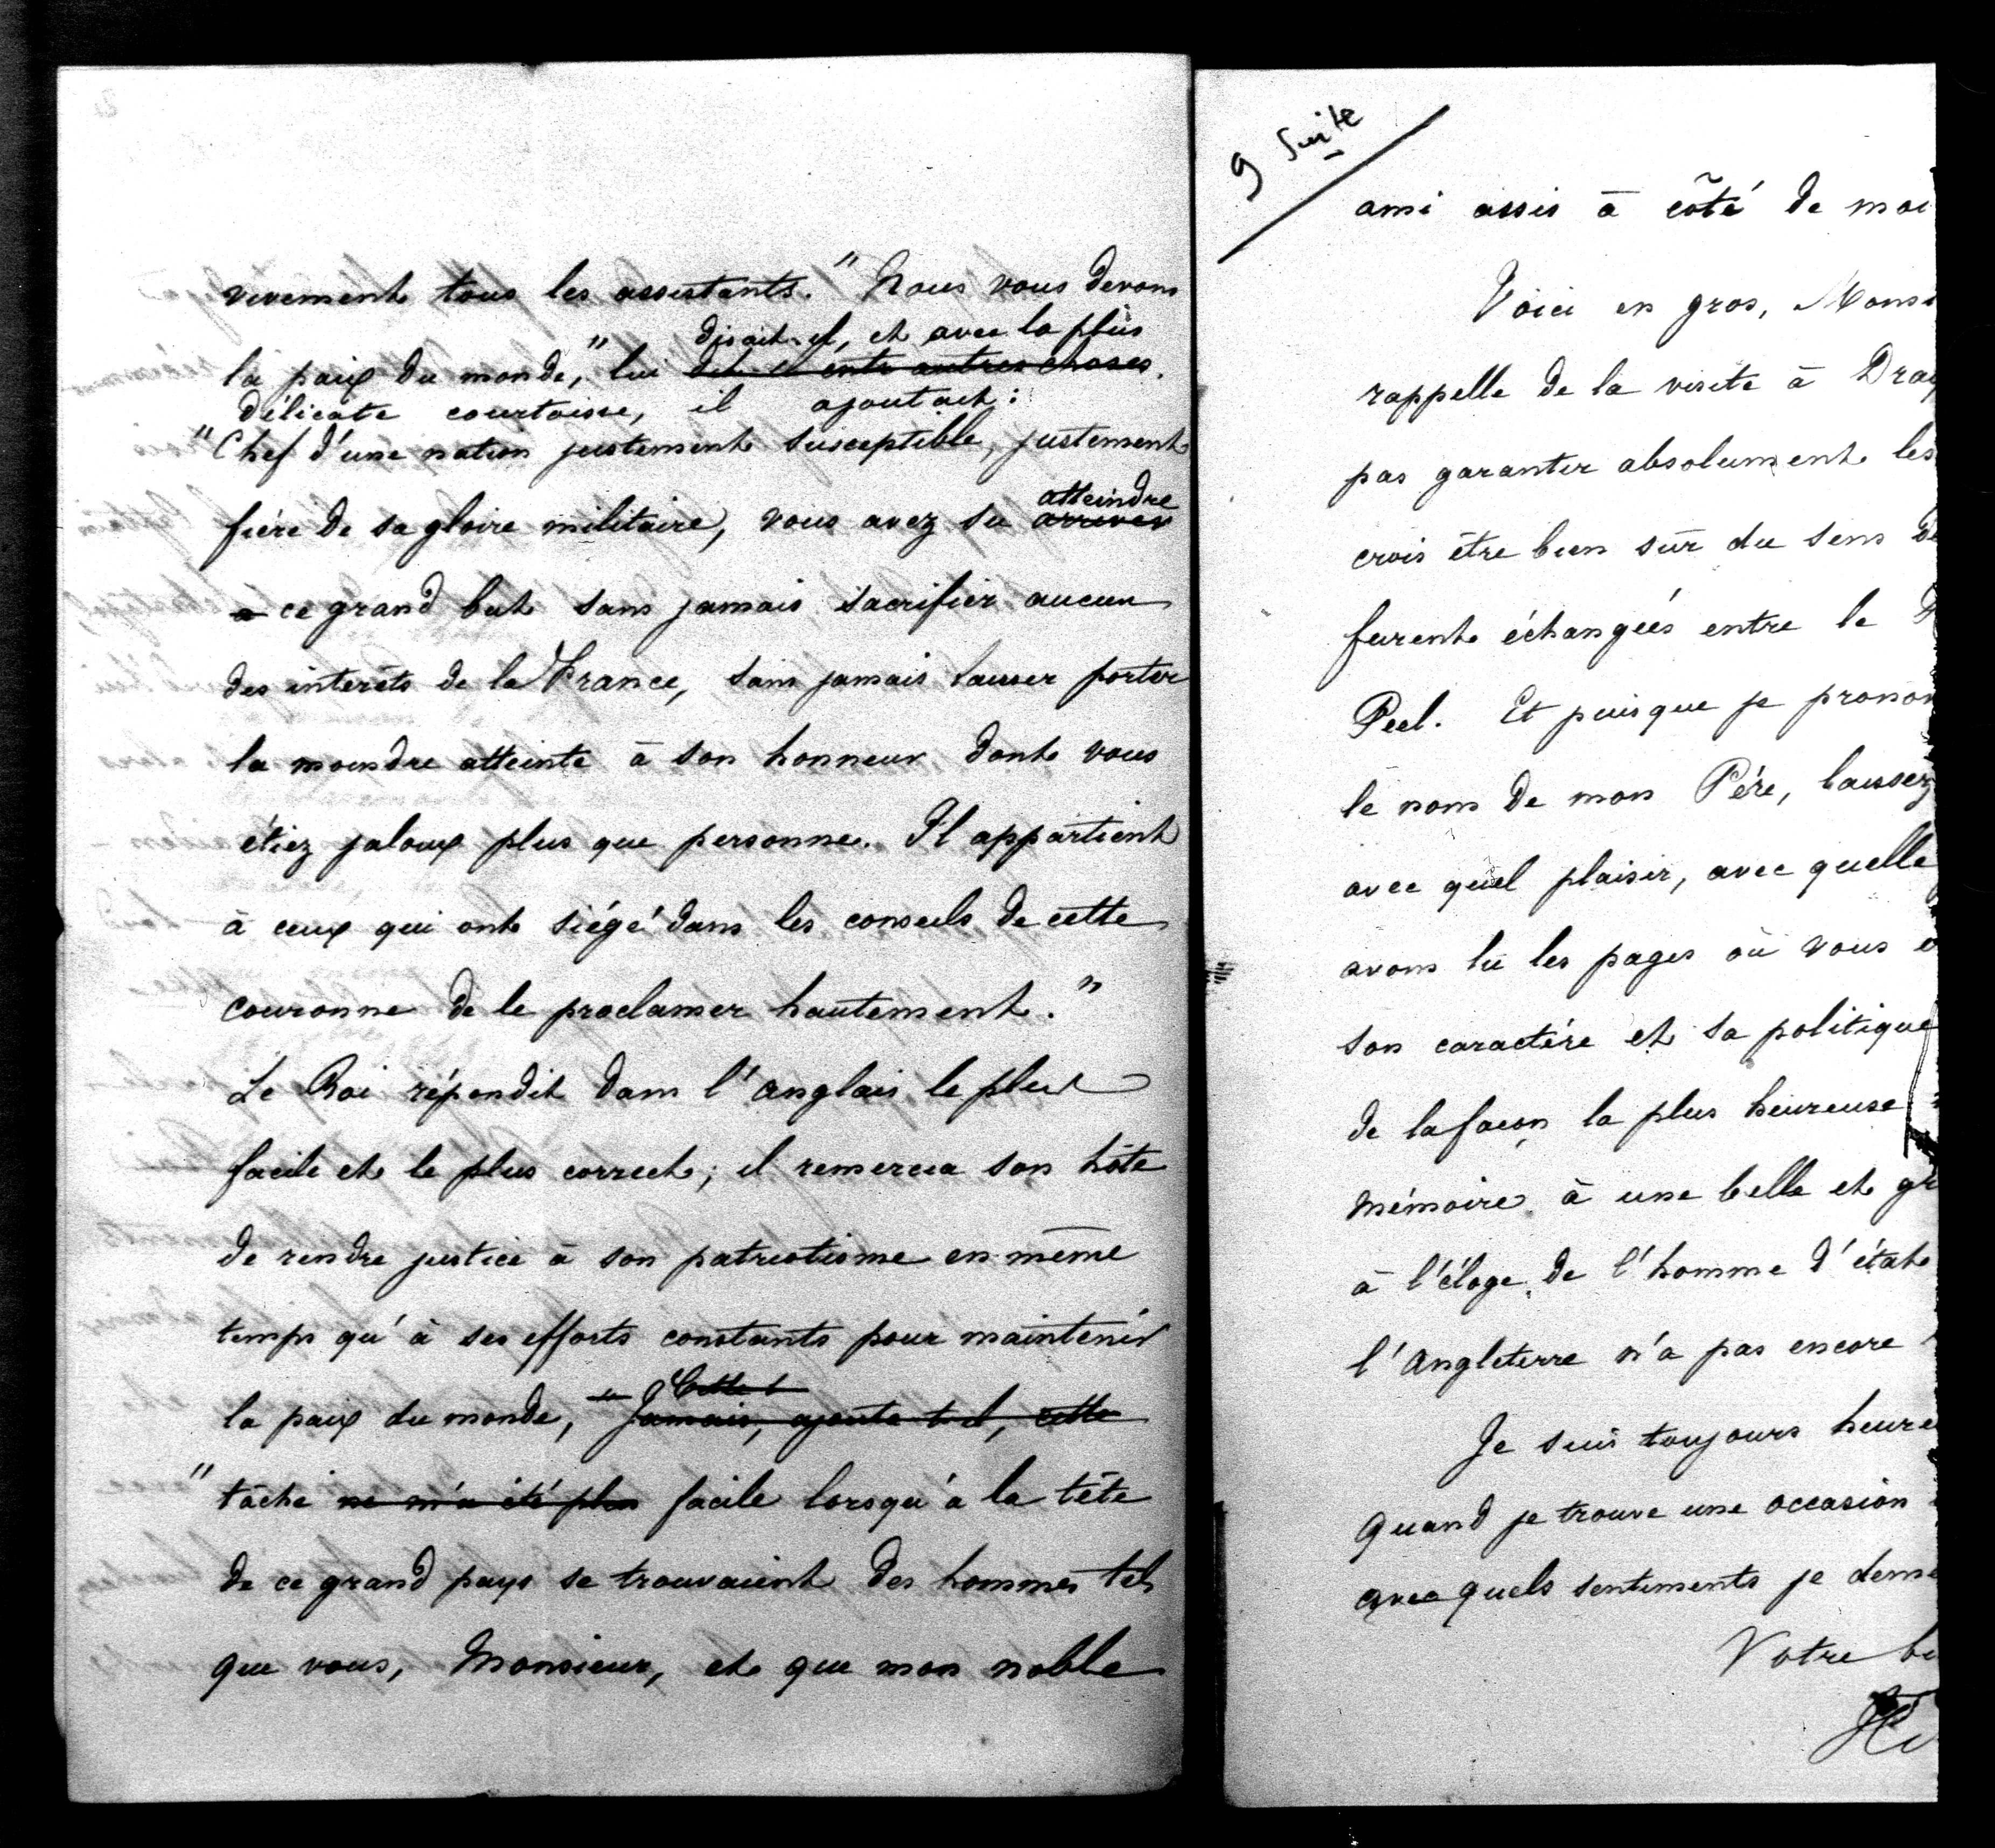 vivement tous les assistants. "Nous vous devons
disait-il, et avec la plus
la paix du monde," lui dit-il entr'autres choses.
délicate courtoisie, il ajoutait:
"Chef d'une nation justement susceptible, justement
atteindre
fière de sa gloire militaire, vous avez su arriver
à ce grand but sans jamais sacrifier aucun
des intérêts de la France, sans jamais laisser porter
la moindre atteinte à son honneur dont vous
étiez jaloux plus que personne. Il appartient
à ceux qui ont siégé dans les conseils de cette
couronne de le proclamer hautement."
Le Roi répondit dans l'anglais le plus
facile et le plus correct; il remercia son hôte
de rendre justice à son patriotisme en même
temps qu'à ses efforts constants pour maintenir
la paix du monde, "Jamais, ajouta-t-il, cette
"tâche ne m'a été plus facile lorsqu'à la tête
de ce grand pays se trouvaient des hommes tels
que vous, Monsieur, et que mon noble
9 Suite
ami assis à côté de moi
Voici en gros, Monsi
rappelle de la visite à Dray
pas garantir absolument les
crois être bien sûr du sens de
furent échangées entre le
Peel. Et puisque je pronon
le nom de mon Père, laissez
avec quel plaisir, avec quelle
avons lu les pages où vous
son caractère et sa politique
de la façon la plus heureuse
mémoire à une belle et gr
à l'éloge de l'homme d'état
l'Angleterre n'a pas encore
Je suis toujours heure
quand je trouve une occasion
avec quels sentiments je deme
Votre